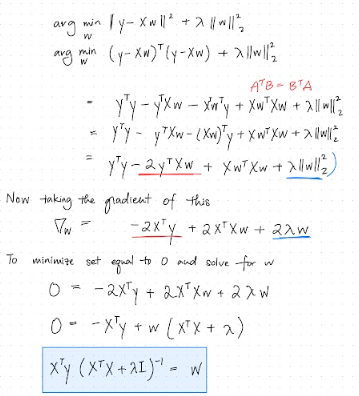 arg min_w ‖y - Xw‖² + λ‖w‖²₂
arg min_w (y-Xw)ᵀ(y-Xw) + λ‖w‖²₂
AᵀB = BᵀA
= yᵀy - yᵀXw - Xwᵀy + XwᵀXw + λ‖w‖²₂
= yᵀy - yᵀXw - (Xw)ᵀy + XwᵀXw + λ‖w‖²₂
= yᵀy - 2yᵀXw + XwᵀXw + λ‖w‖²₂)
Now taking the gradient of this
∇w = -2Xᵀy + 2XᵀXw + 2λw
To minimize set equal to 0 and solve for w
0 = -2Xᵀy + 2XᵀXw + 2λw
0 = -Xᵀy + w(XᵀX + λ)
Xᵀy (XᵀX + λI)⁻¹ = w